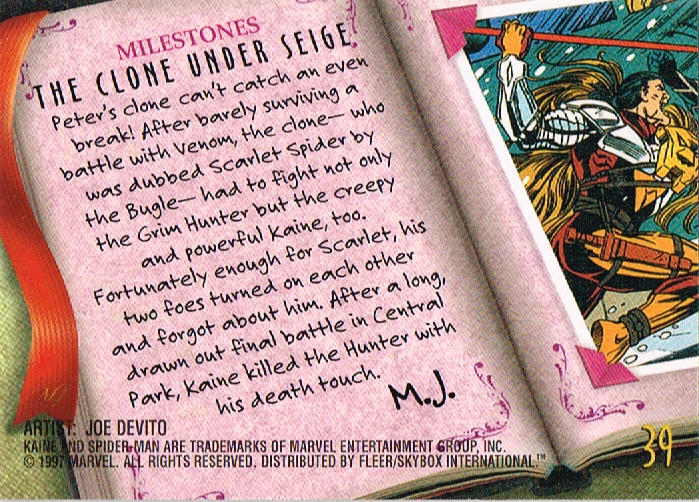 MILESTONES
THE CLONE UNDER SEIGE
Peter's clone can't catch an even
break! After barely surviving a
battle with Venom, the clone— who
was dubbed Scarlet Spider by
the Bugle— had to fight not only
the Grim Hunter but the creepy
and powerful Kaine, too.
Fortunately enough for Scarlet, his
two foes turned on each other
and forgot about him. After a long,
drawn out final battle in Central
Park, Kaine killed the Hunter with
his death touch.
M.J.
ARTIST: JOE DEVITO
KAINE AND SPIDER-MAN ARE TRADEMARKS OF MARVEL ENTERTAINMENT GROUP, INC.
© 1997 MARVEL. ALL RIGHTS RESERVED. DISTRIBUTED BY FLEER/SKYBOX INTERNATIONAL.™
39